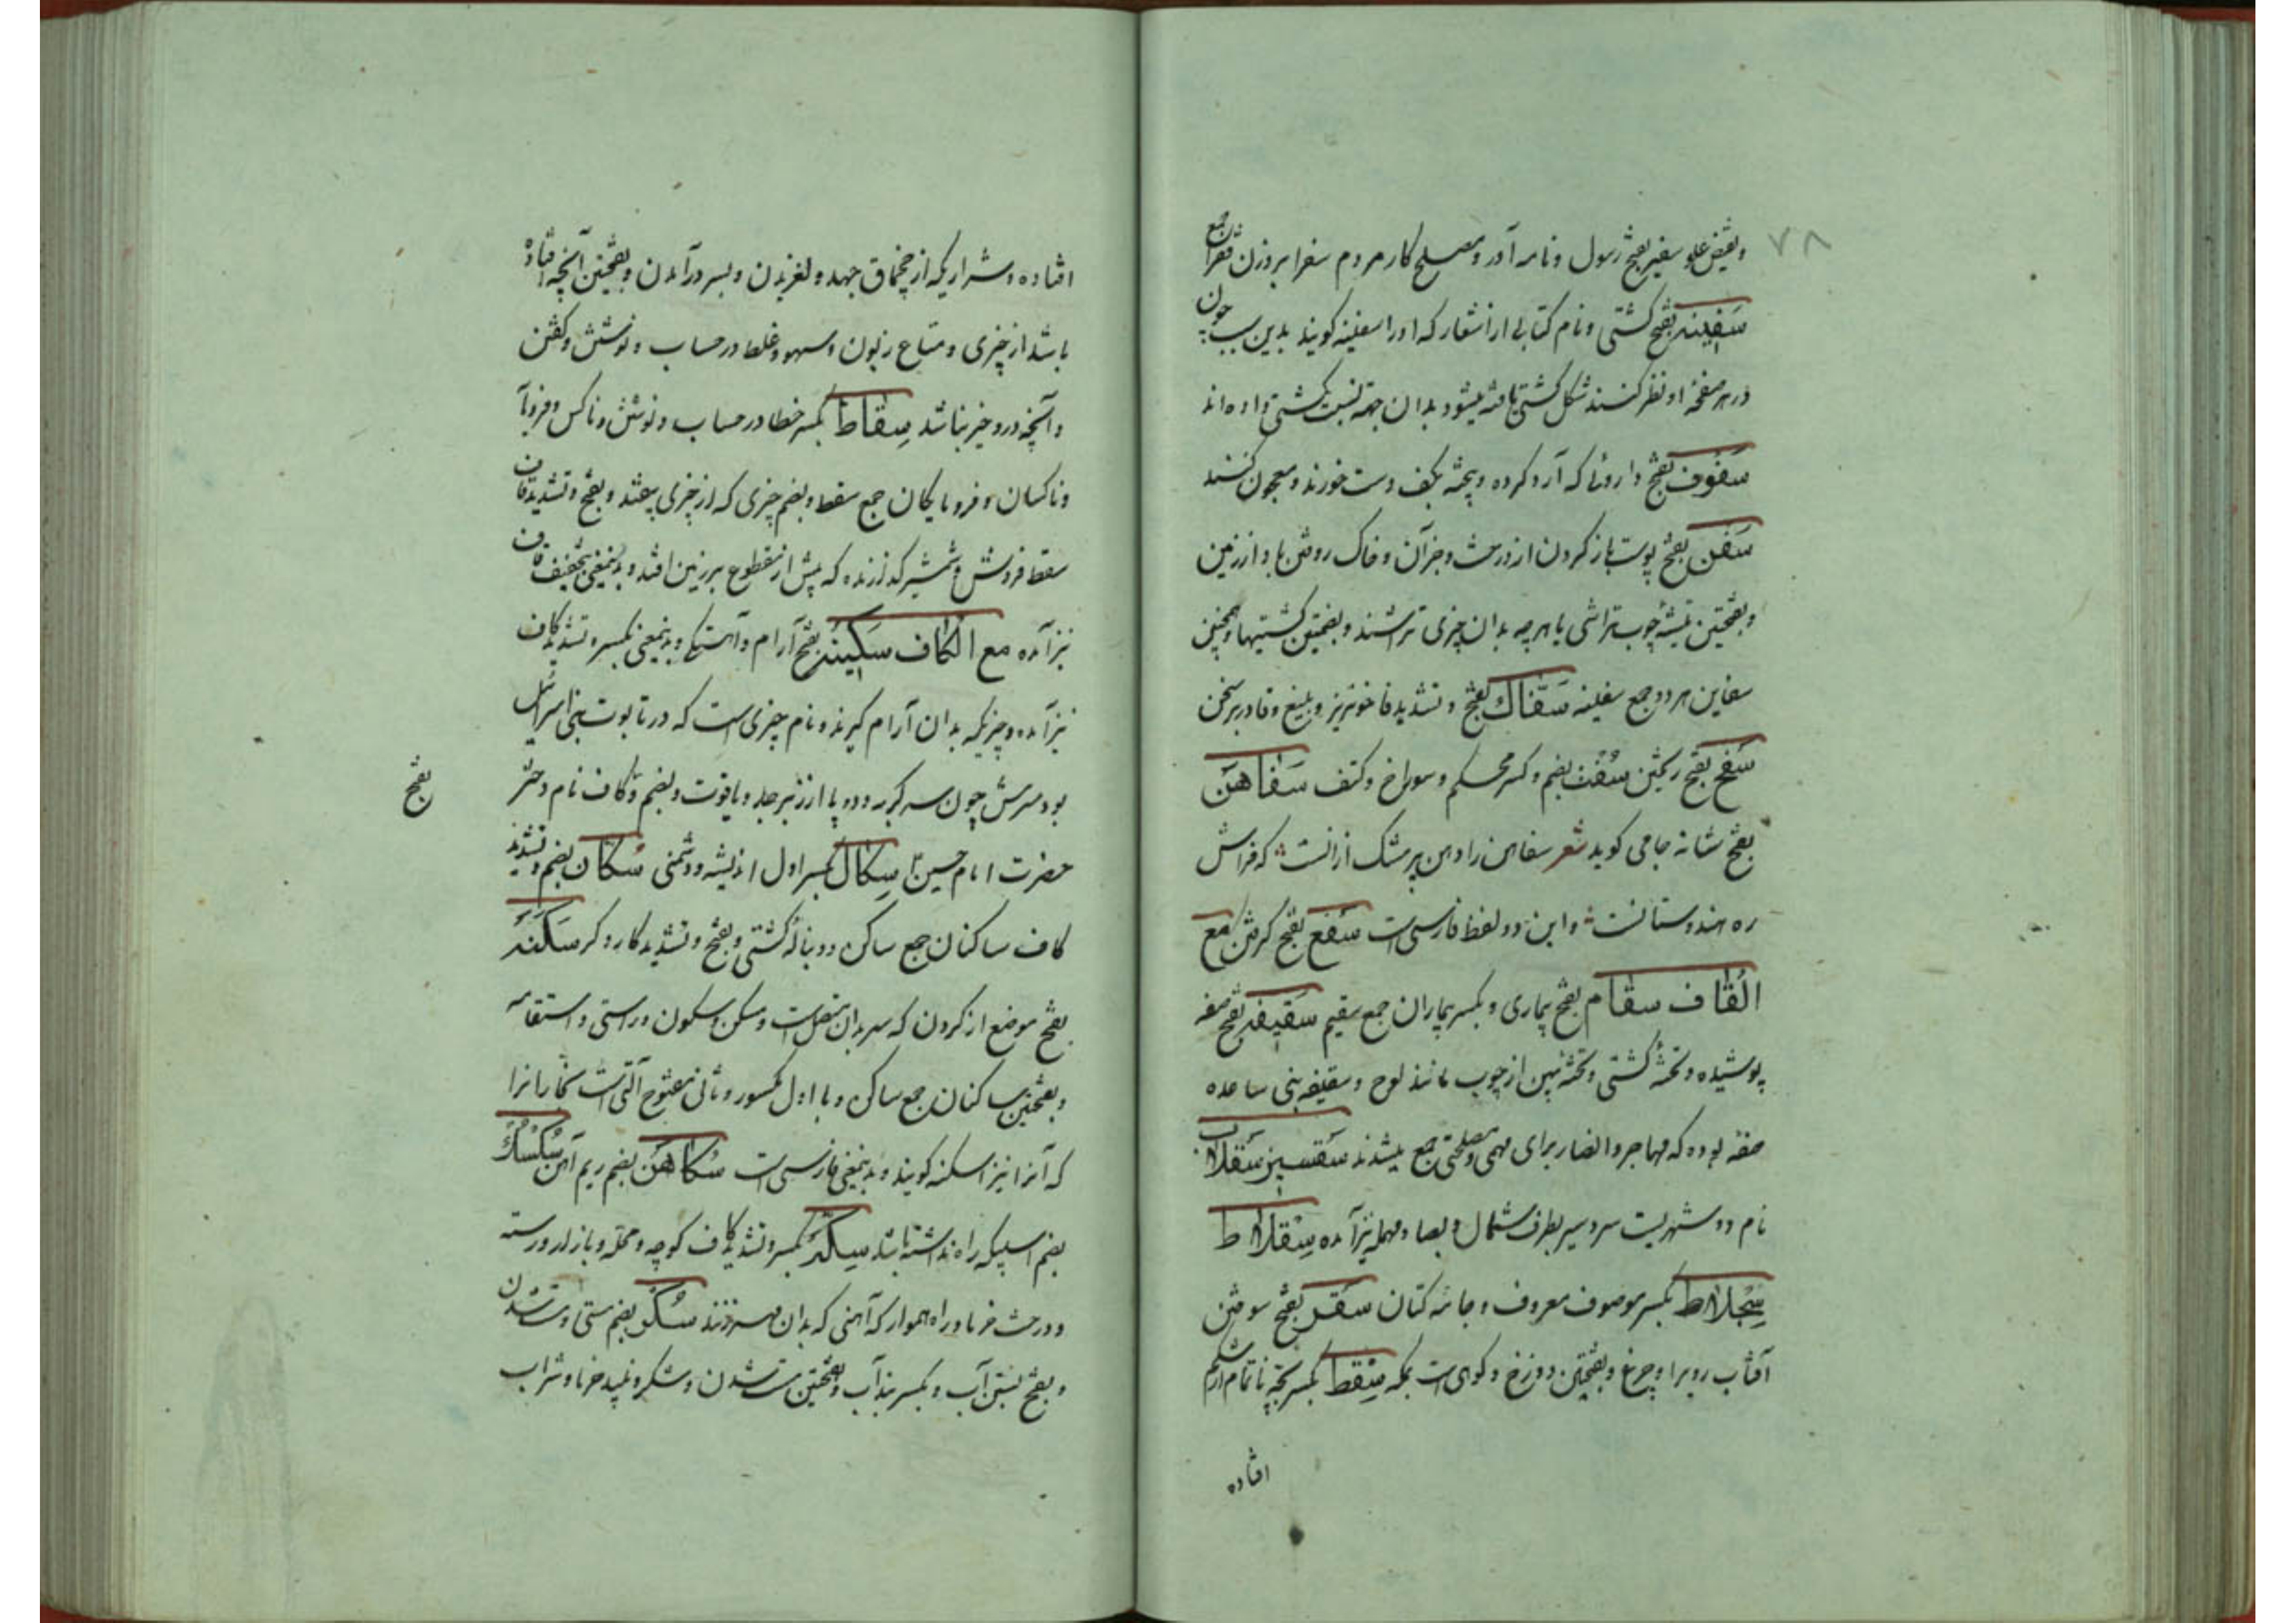 ۷۸
ونقیض علو سفیر بفتح رسول و نامه آور و مصلح کار مردم سفرا بر وزن فقرا جمع
سَفِینه بفتح کشتی و نام کتابی از اشعار که او را سفینه کویند بدین سبب چون
در هر صفحهٔ او نظر کنند شکل کشتی یافته میشود بدان جهة نسبت بکشتی داده اند
سَفوف بفتح داروئی که آرد کرده و پخته بکف دست خورند و معجون کنند
سَفن بفتح پوست باز کردن از درخت و جز آن و خاک روفتن باد از زمین
و بفتحتین تیشهٔ چوب تراشی یا هرچه بدان چیزی تراشند و بضمتین کشتیها و همچنین
سفاین هر دو جمع سفینه سَفّاك بفتح و تشدید فا خونریز و بلیغ و قادر بر سخن
سَفح بفتح ریختن سُفت بضم و کسر محکم و سوراخ و کتف سَفاهَن
بفتح شانه جامی کوید شعر سفاهن را دهن پر مشک ازانست که فراش
ره هندوستانست و این دو لفظ فارسی است سَفع بفتح کرفتن مع
القاف سقام بفتح بیماری و بکسر بیماران جمع سقیم سَقیفه بفتح صفه
پوشیده و تختهٔ کشتی و تختهٔ پهن از چوب مانند لوح و سقیفه بنی ساعده
صفه بوده که مهاجر و انصار برای مهمی و مصلحتی جمع میشدند سَقسین سَقلاب
نام دو شهریست سردسیر بطرف شمال و بصاد مهمله نیز آمده سِقلاط
سِجِلاط بکسر موصوف معروف و جامه کتان سَقر بفتح سوختن
آفتاب روی را و چرغ و بفتحتین دوزخ و کوهی است بمکه سِقط بکسر بچه ناتمام از شکم
افتاده
افتاده و شراریکه از چخماق جهد و لغزیدن و بسر درآمدن و بفتحتین آنچه افتاده
باشد از چیزی و متاع زبون و سهو و غلط در حساب و نوشتن و کفتن
و آنچه درو خیر نباشد سِقاط بکسر خطا در حساب و نوشتن و ناکس و فرومایه
و ناکسان و فرومایکان جمع سقط و بضم چیزی که از چیزی بیفتد و بفتح و تشدید قاف
سقط فروش و شمشیر کذرنده که پیش از مقطوع بر زمین افتد و بدینمعنی بتخفیف قاف
نیز آمده مع الکاف سَکینه بفتح آرام و آهستکی و بدینمعنی بکسر و تشدید کاف
نیز آمده و چیزیکه بدان آرام کیرند و نام چیزی است که در تابوت بنی اسرائیل
بود سرش چون سر کربه و دو پا از زبرجد و یاقوت و بضم و کاف نام دختر
بفتح
حضرت امام حسین سِکال بکسر اول اندیشه و دشمنی سُکّان بضم و تشدید
کاف ساکنان جمع ساکن و دنبالهٔ کشتی و بفتح و تشدید کاردکر سَکَنه
بفتح موضع از کردن که سر بدان متصل است و سکن و سکون و راستی و استقامه
و بفتحتین ساکنان جمع ساکن و با اول مکسور و ثانی مفتوح آلتی است نجارانرا
که آنرا نیز اسکنه کویند و بدینمعنی فارسی است سُکاهَن بضم ریم آهن سُکسُك
بضم اسپیکه راه نداشته باشد سِکّه بکسر و تشدید کاف کوچه و محله و بازار و رسته
و درخت خرما و راه هموار که آهنی که بدان مهر زنند سُکر بضم مستی و مست شدن
و بفتح بستن آب و بکسر بند آب و بفتحتین مست شدن و شکر و نبیذ خرما و شراب